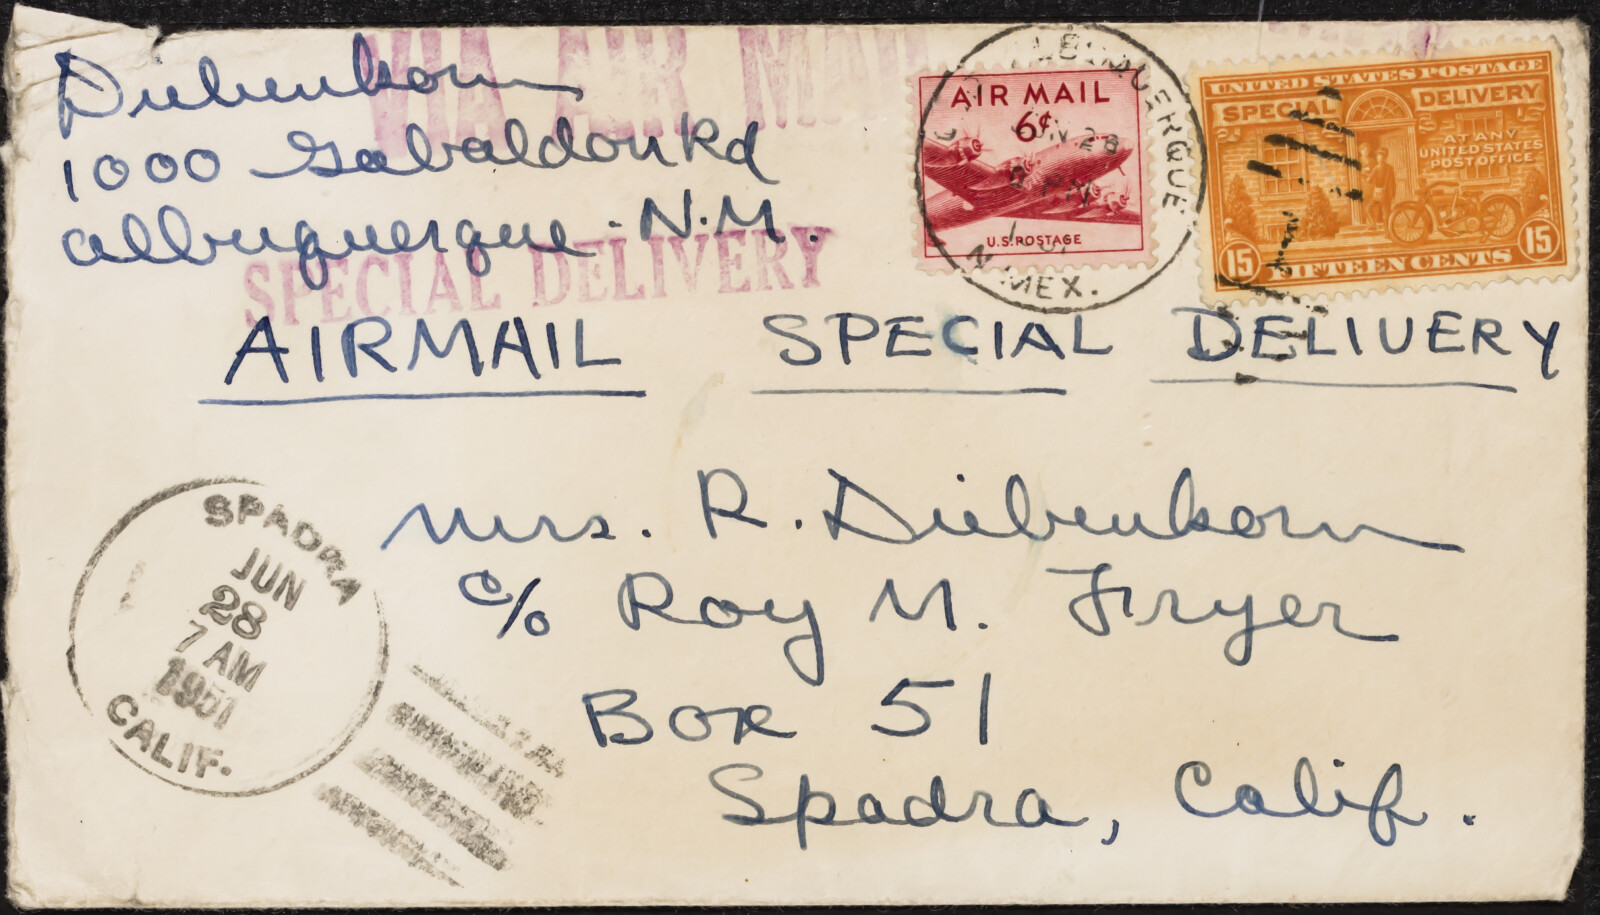 VIA AIR MAIL
Diebenkorn
1000 Gabaldon Rd
Albuquerque N.M.
SPECIAL DELIVERY
ALBUQUERQUE
JUN 28
PM
N. MEX.
AIR MAIL
6¢
U.S. POSTAGE
UNITED STATES POSTAGE
SPECIAL DELIVERY
AT ANY
UNITED STATES
POST OFFICE
15 FIFTEEN CENTS 15
AIRMAIL SPECIAL DELIVERY
Mrs. R. Diebenkorn
c/o Roy M. Fryer
Box 51
Spadra, Calif.
SPADRA
JUN
28
7 AM
1951
CALIF.